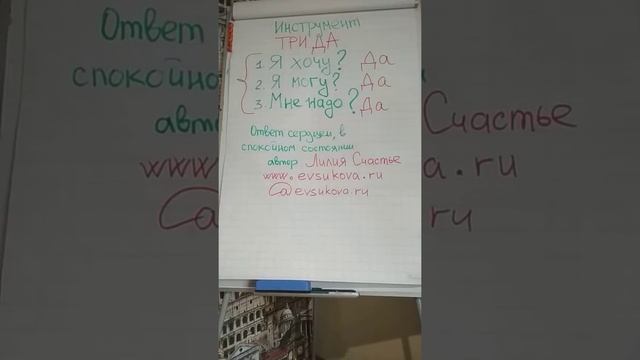 Инструмент
ТРИ ДА
1. Я хочу? Да
2. Я могу? Да
3. Мне надо? Да
Ответ сердцем, в
спокойном состоянии
автор Лилия Счастье
www.evsukova.ru
@evsukova.ru